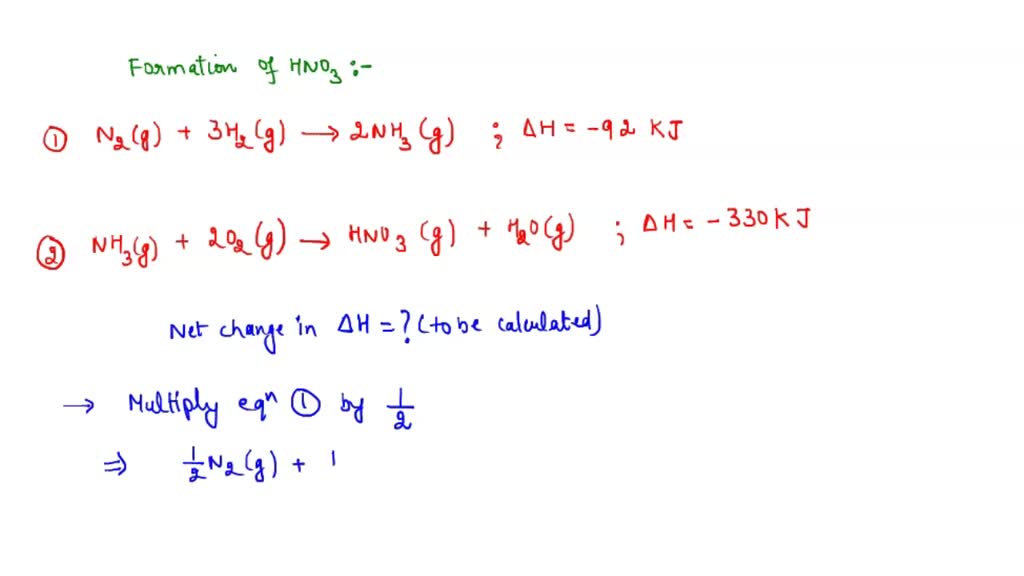 Formation of HNO3 :-
① N2(g) + 3H2(g) → 2NH3(g) ; ΔH = -92 KJ
② NH3(g) + 2O2(g) → HNO3(g) + H2O(g) ; ΔH = -330 KJ
Net change in ΔH = ? (to be calculated)
→ Multiply eqn ① by 1/2
⇒ 1/2 N2(g) +